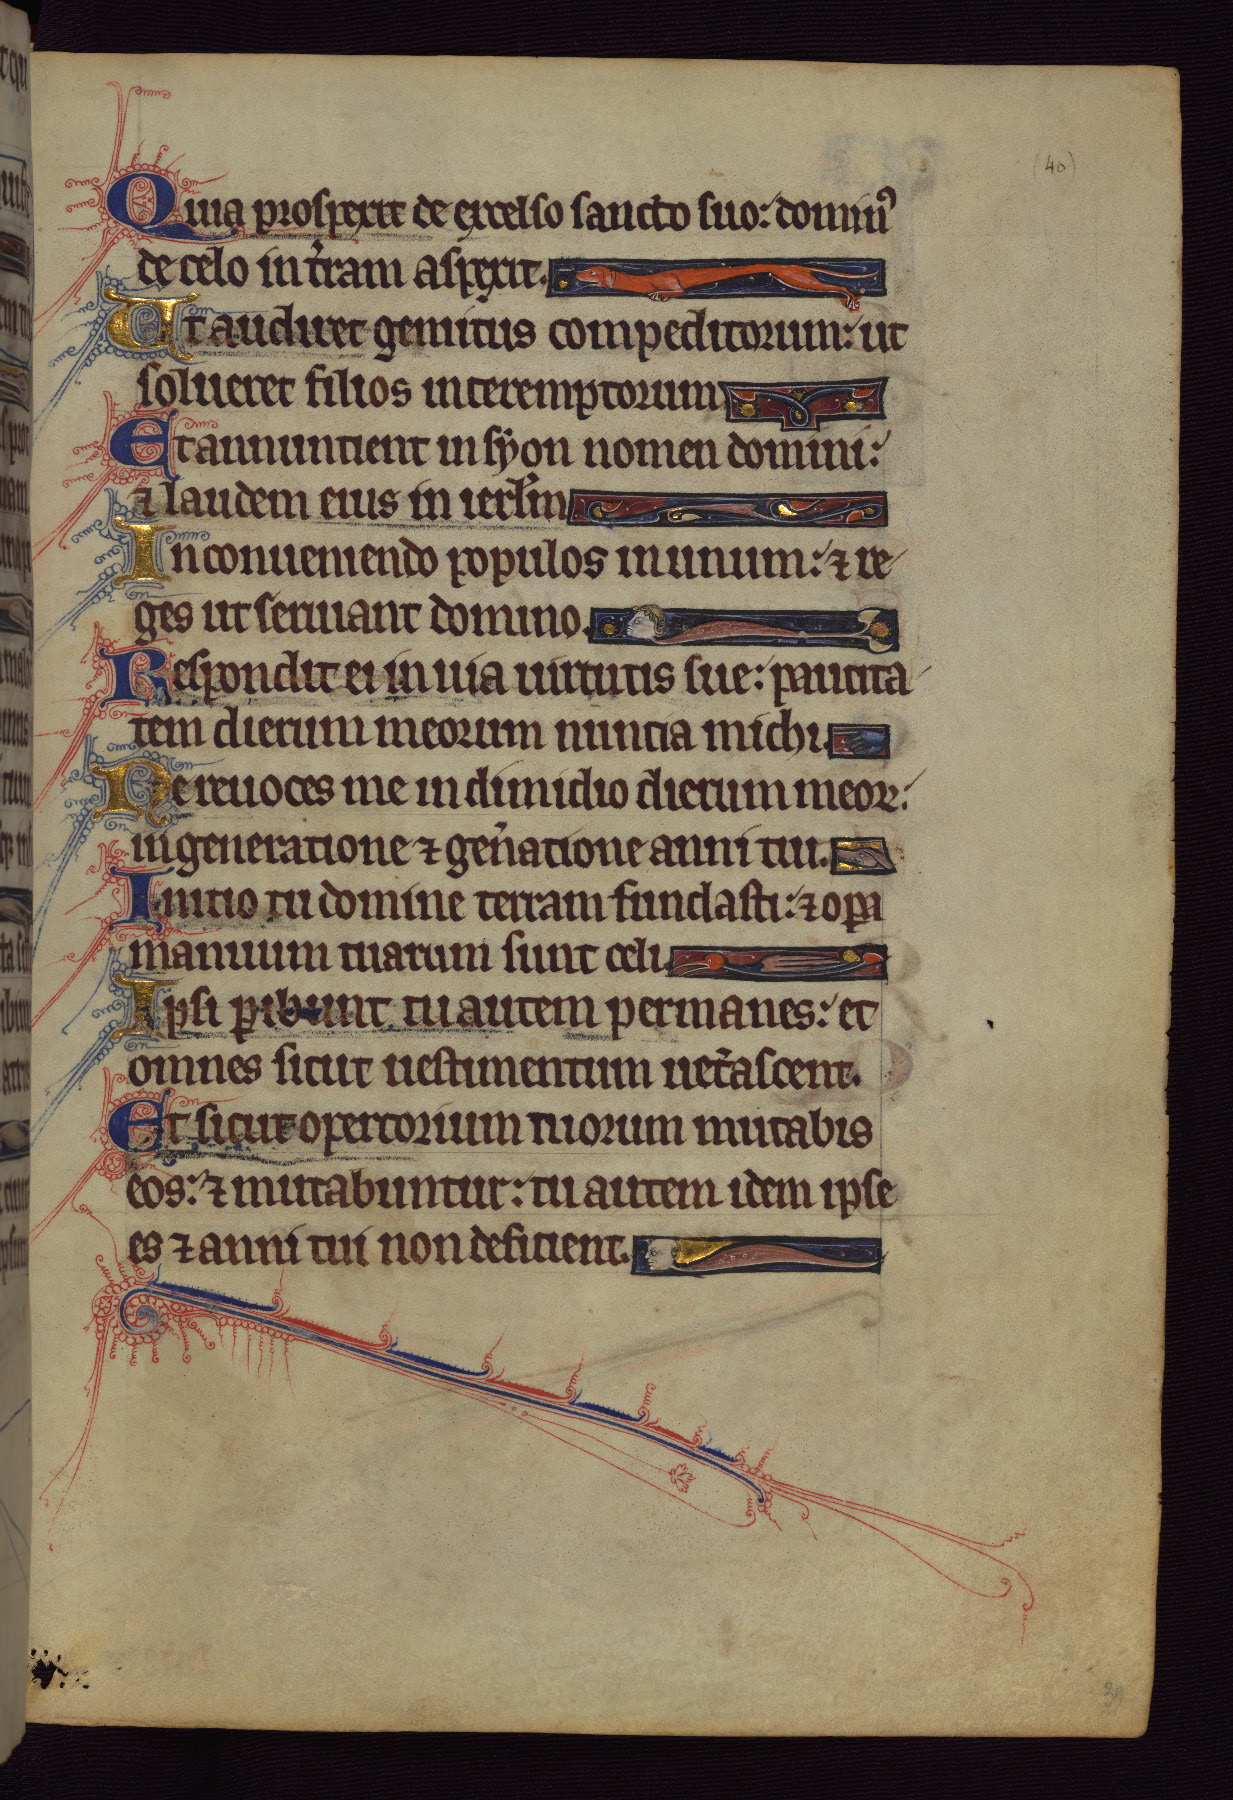 (40)
Quia prospexit de excelso sancto suo: domin⁹
de celo in t̉ram aspexit.
Ut audiret gemitus compeditorum: ut
solueret filios interemptorum
Et annuntient in syon nomen domini:
⁊ laudem eius in ierl̃m
In conueniendo populos in unum: ⁊ re
ges ut seruiant domino.
Respondit ei in uia uirtutis sue: paucita
tem dierum meorum nuncia michi.
Ne reuoces me in dimidio dierum meoꝝ:
in generatione ⁊ gen̉atione anni tui.
Initio tu domine terram fundasti: ⁊ oꝑa
manuum tuarum sunt celi.
Ipsi ꝑibunt tu autem permanes: et
omnes sicut uestimentum uet̉ascent.
Et sicut opertorium tuorum mutabis
eos: ⁊ mutabuntur: tu autem idem ipse
es ⁊ anni tui non deficient.